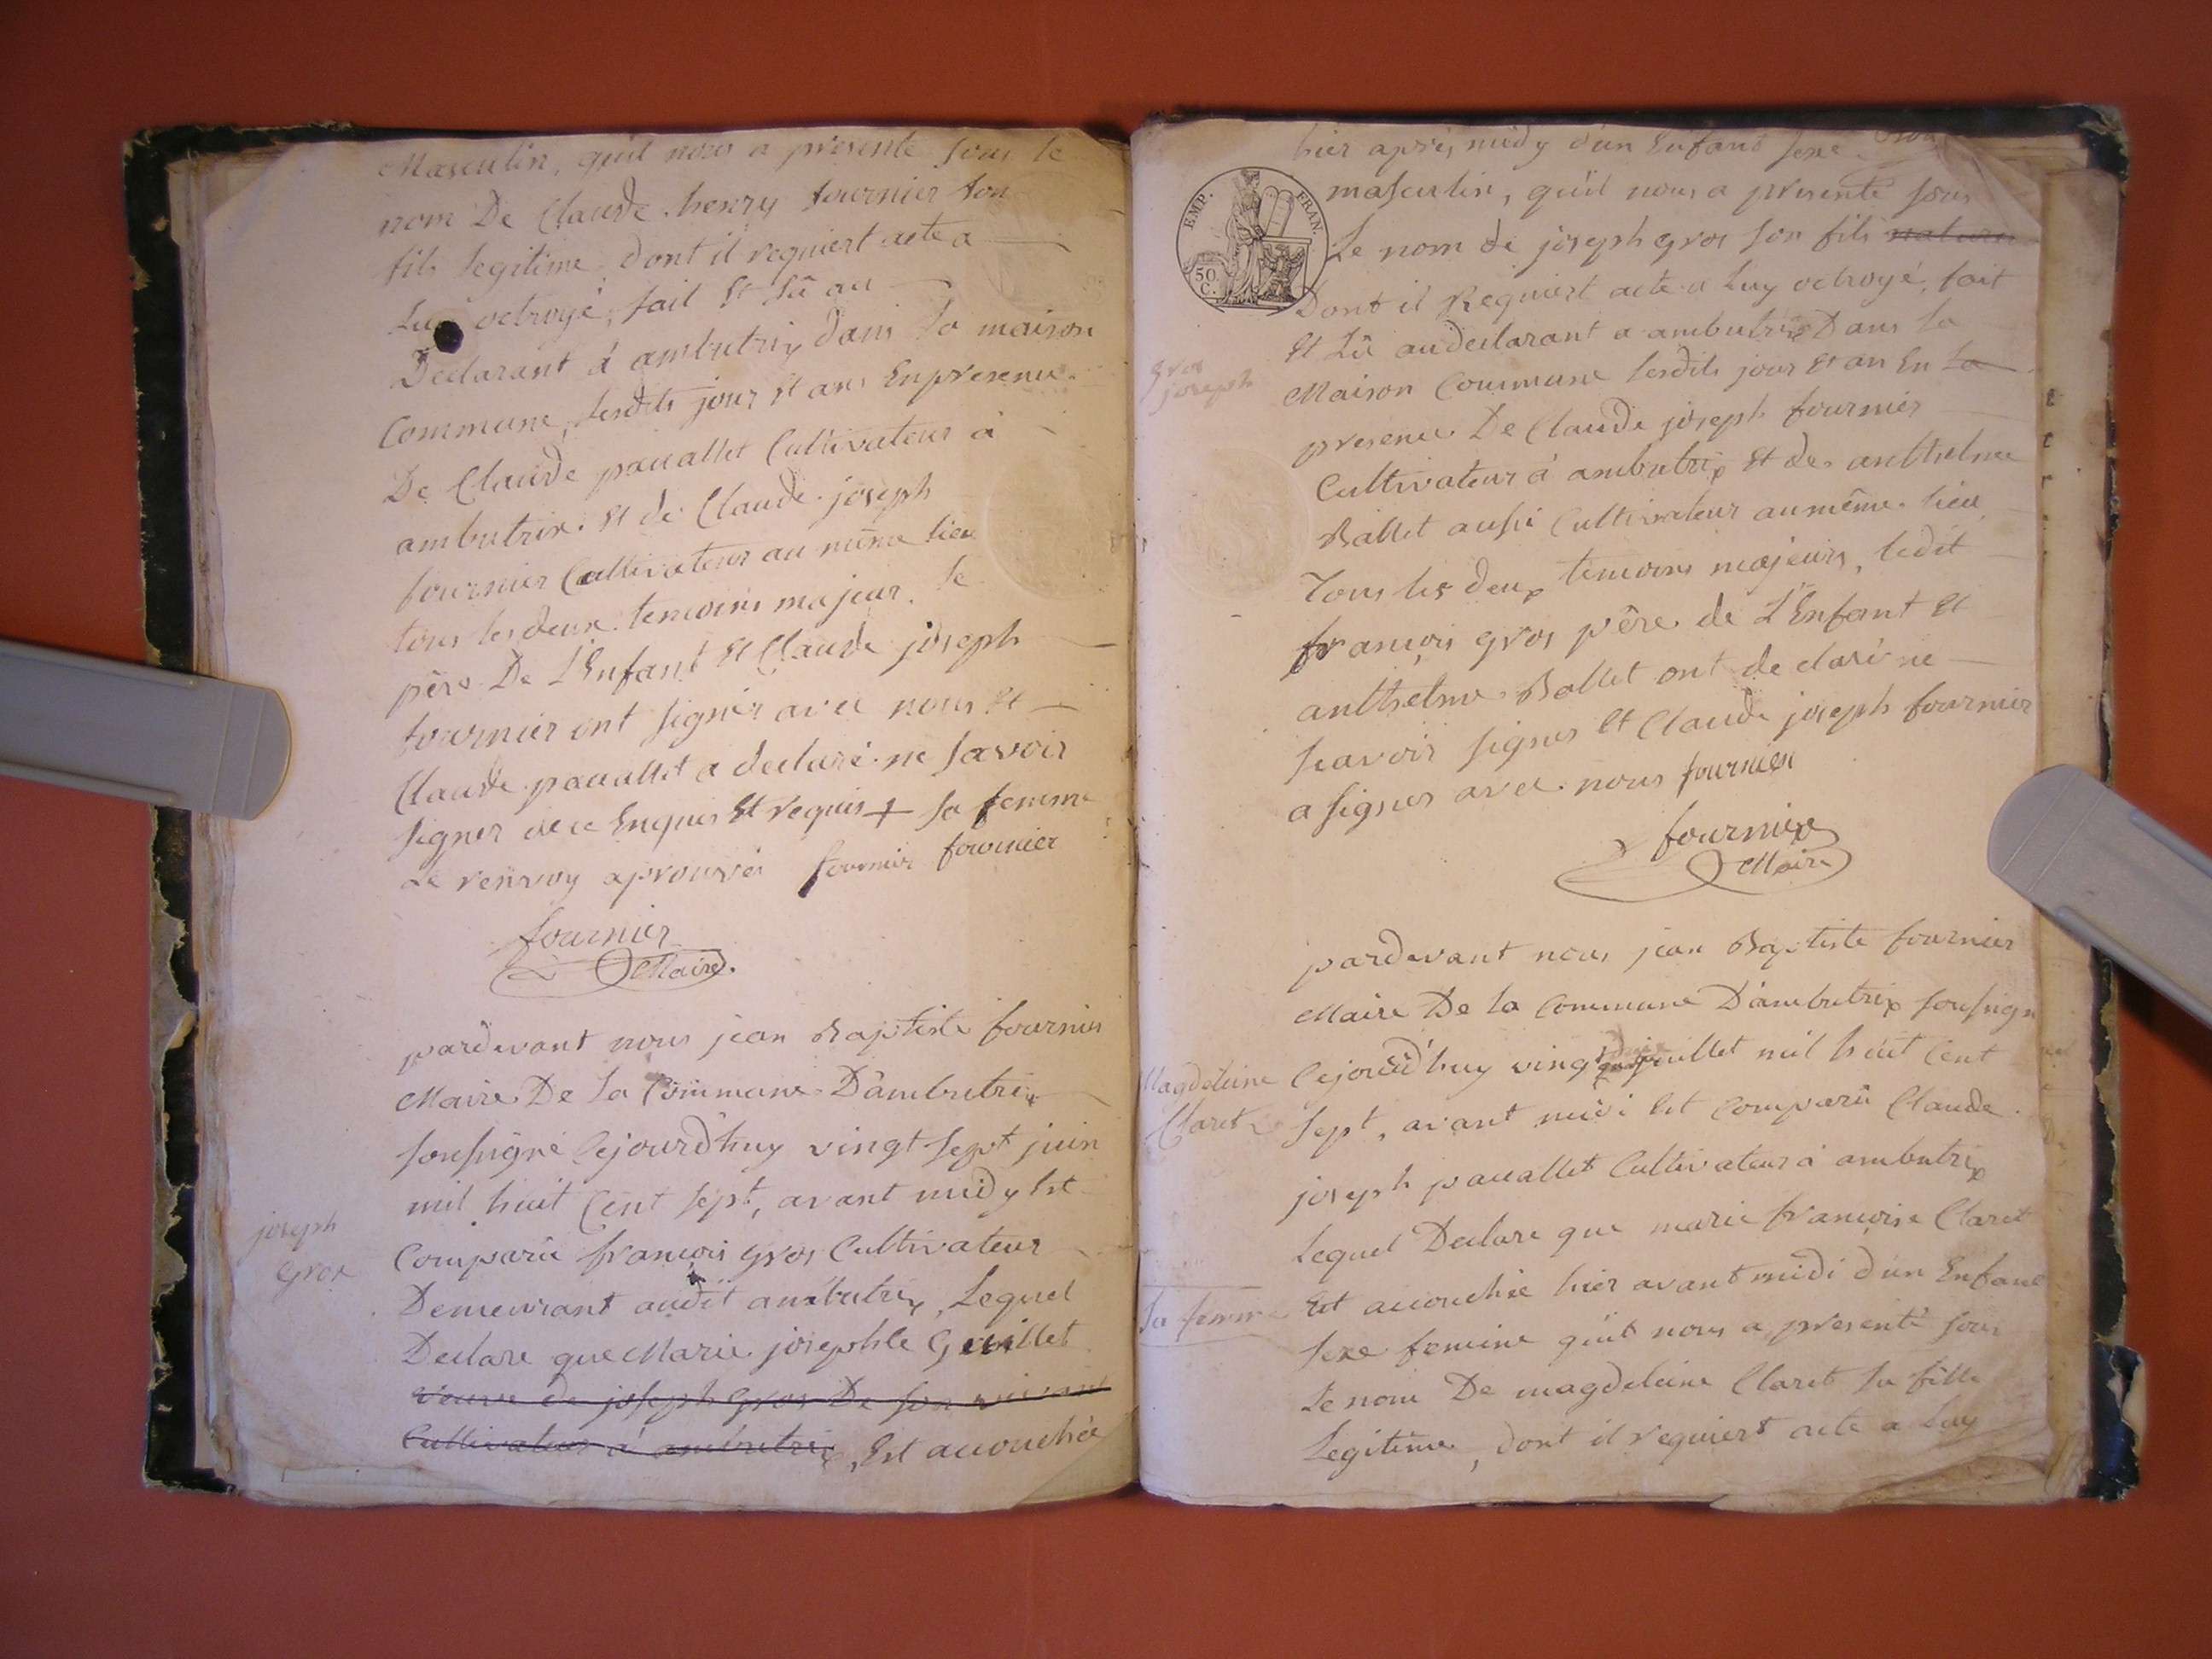 Masculin, quil nous a présenté sous le
nom De Claude henry fournier son
fils legitime dont il requiert acte a
Luy octroyé, fait Et Lû au
Declarant á ambutrix dans la maison
Commune, lesdits jour et ans En presence
De Claude pauallet Cultivateur á
ambutrix. et de Claude joseph
fournier Cultivateur au même lieu
tous les deux temoins majeur. le
père De L'Enfant Et Claude joseph
fournier ont signér avec nous Et
Claude pauallet a declaré ne savoir
signer de ce Enquis Et requis + sa femme
Le renvoy aprouvés fournier fournier
fournier
Maire.
pardevant nous jean Baptiste fournier
Maire De la Commune D'ambutrix
sousigné Cejourd'huy vingt sept juin
mil huit Cent sept, avant midy Est
joseph
Gros
Comparû françois gros Cultivateur
Demeurant audit ambutrix, Lequel
Declare que Marie josephte Guillet
veuve de joseph gros De son vivant
Cultivateur á ambutrix, Est accouchée
hier aprés midy d'un Enfant sexe
EMP. FRAN.
50 C.
masculin, qu'il nous a presenté sous
Le nom de joseph gros son fils naturel
Dont il Requiert acte a Luy octroyé, fait
Et Lû au declarant a ambutrix Dans la
gros
joseph
Maison Commune lesdits jour Et an En la
presence De Claude joseph fournier
Cultivateur á ambutrix Et de anthelme
Ballet aussi Cultivateur au même lieu
Tous les deux temoins majeurs, ledit
françois gros père de L'Enfant Et
anthelme Ballet ont declaré ne
scavoir signer Et Claude joseph fournier
a signer avec nous fournier
fournier
Maire
pardevant nous jean Baptiste fournier
Maire De la Commune D'ambutrix sousign
Magdeleine
Claret
Cejourd'huy vingt juillet mil huit Cent
sept, avant midi Est Comparû Claude
joseph pauallet Cultivateur á ambutrix
Lequel Declare que marie françoise Claret
sa femme
Est accouchée hier avant midi d'un Enfant
sexe feminine qu'il nous a presenté sous
Le nom De magdeleine Claret sa fille
Legitime, dont il requiert acte a Luy